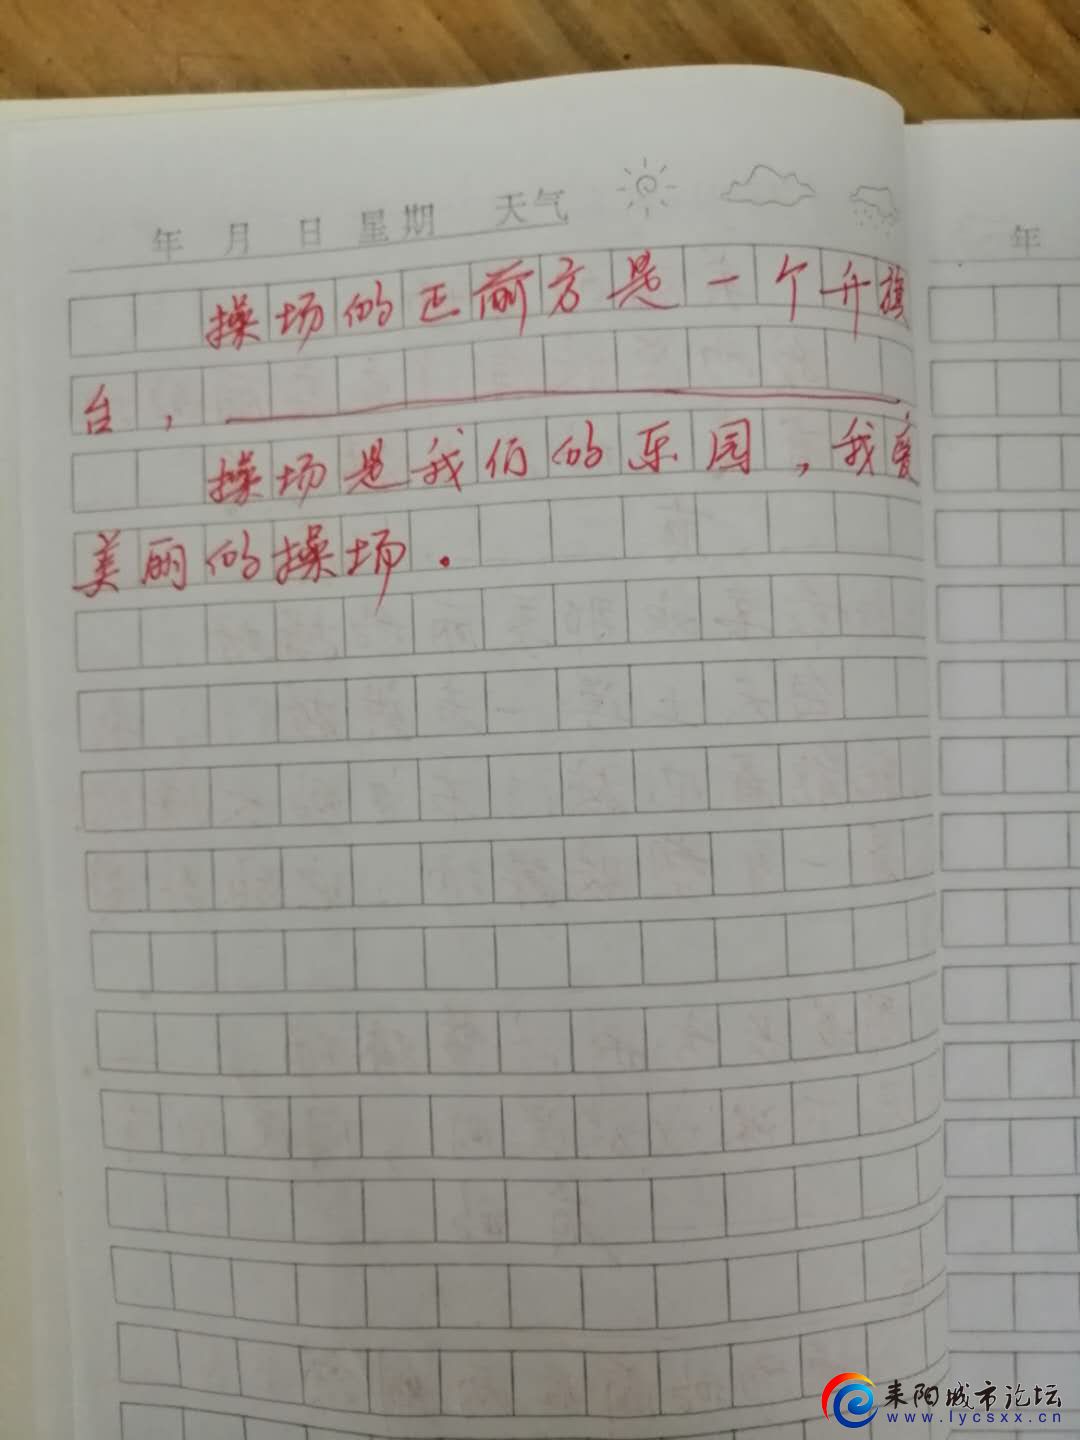 年 月 日 星期 天气
年
操场的正前方是一个升旗
台，
操场是我们的乐园，我爱
美丽的操场.
耒阳城市论坛
www.lycsxx.cn